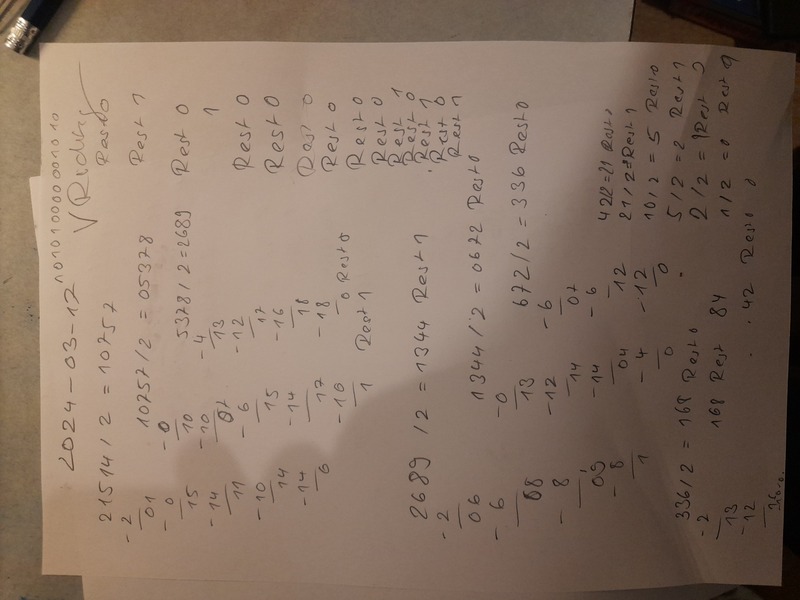 2024-03-12 101010000001010
21514/2 = 10757 Rest 0
-2
01 10757/2 = 05378 Rest 1
-0 -0
15 10 5378/2=2689 Rest 0
-14 -10 -4 1
11 07 13
-10 -6 -12 Rest 0
14 15 17
-14 -14 -16 Rest 0
0 17 18 Rest 0
-16 -18 Rest 0
1 Rest 1 0 Rest 0 Rest 0
Rest 0
Rest 1
2689 /2 = 1344 Rest 1 Rest 0
-2 Rest 1
Rest 0
06 Rest 1
-6 1344/2 = 0672 Rest 0
-0
08 13 672/2 = 336 Rest 0
-8 -12 -6
09 14 07
-8 -14 -6 42/2=21 Rest
1 04 12 21/2= Rest 1
-4 -12 10/2 = 5 Rest 0
0 0 5/2 = 2 Rest 1
336/2 = 168 Rest 0 2/2 = 1 Rest
-2 168 Rest 84 1/2 =0 Rest
13
-12 42 Rest 0